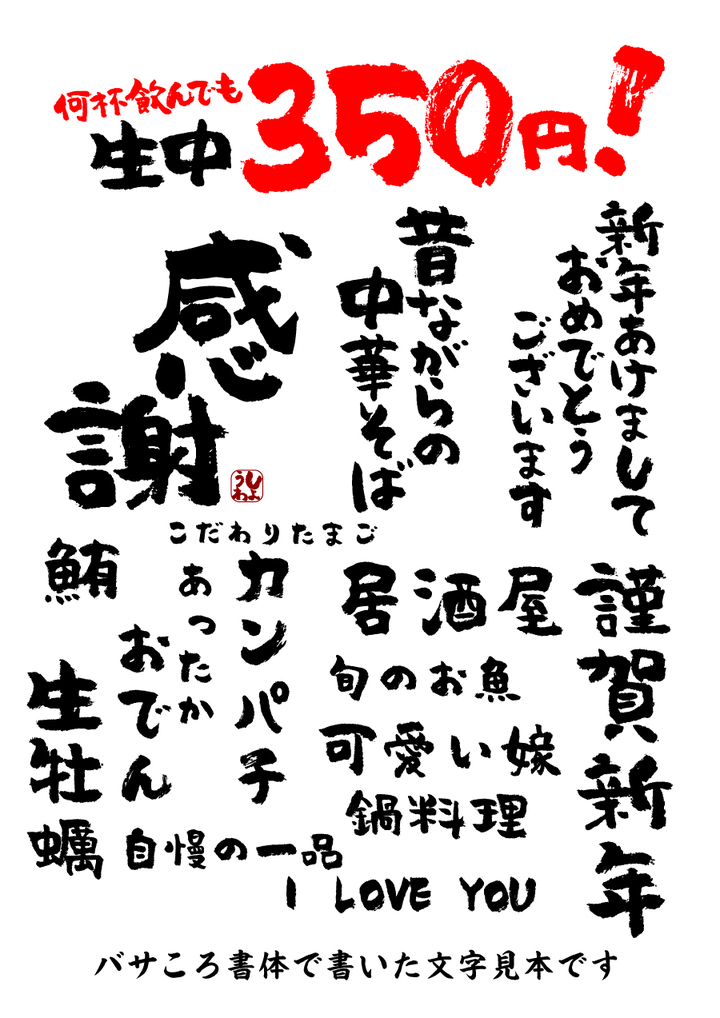 何杯飲んでも
生中350円!
新年あけまして
おめでとう
ございます
昔ながらの
中華そば
感謝
しょうわ
こだわりたまご
鮪
カンパチ
あったか
おでん
生牡蠣
居酒屋
旬のお魚
可愛い嫁
鍋料理
謹賀新年
自慢の一品
I LOVE YOU
バサころ書体で書いた文字見本です